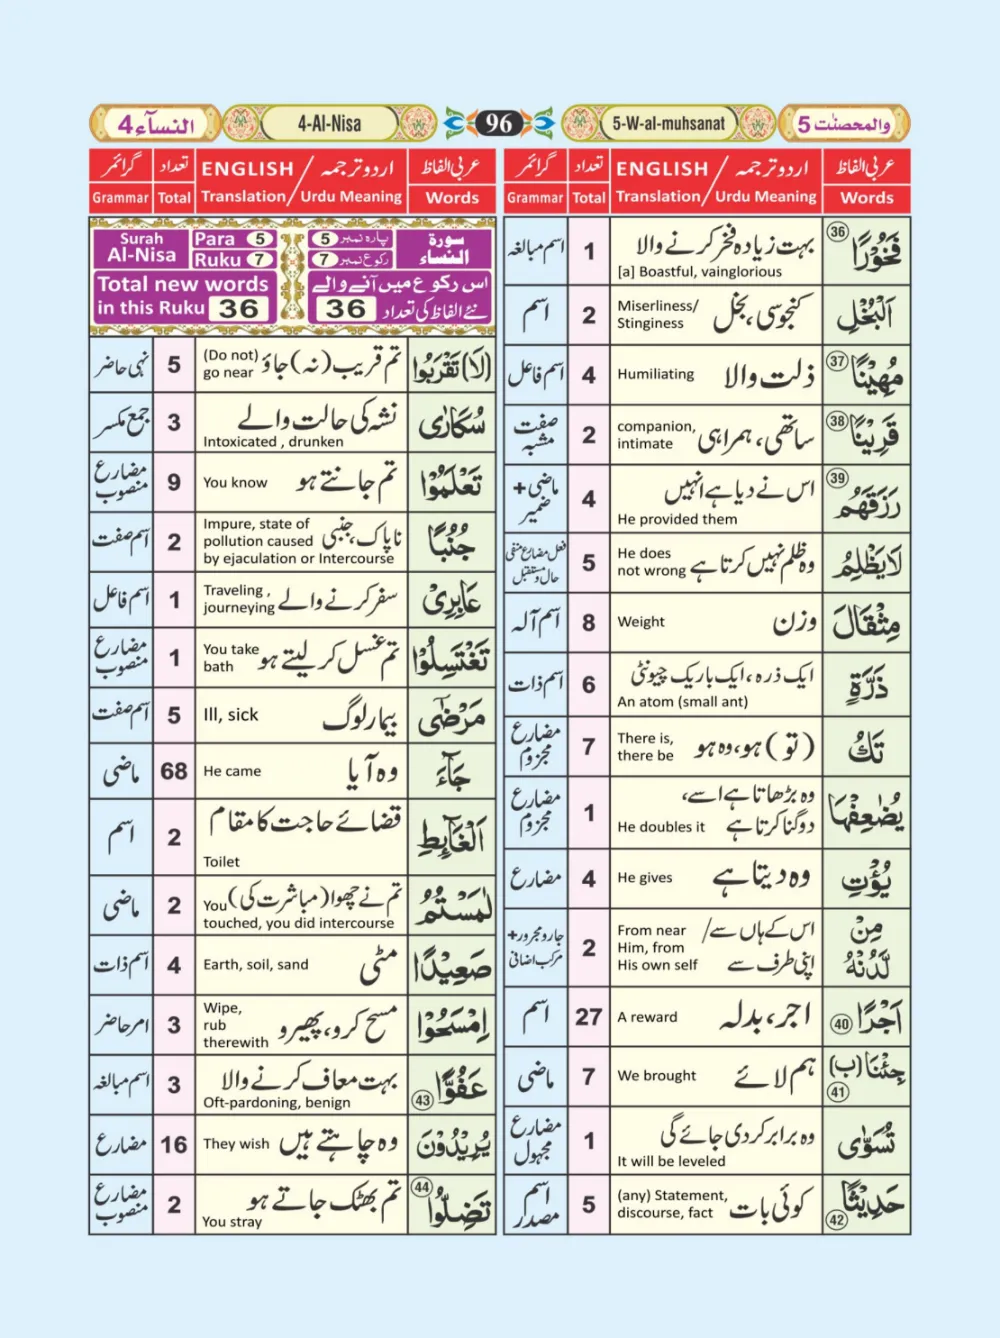 والمحصنٰت 5
5-W-al-muhsanat
96
4-Al-Nisa
النسآء 4
عربی الفاظ
اردو ترجمہ / ENGLISH
تعداد
گرائمر
Words
Translation / Urdu Meaning
Total
Grammar
36
فَخُوْرًا
بہت زیادہ فخر کرنے والا
[a] Boastful, vainglorious
1
اسم مبالغہ
اَلْبُخْلِ
کنجوسی، بخل
Miserliness/
Stinginess
2
اسم
37
مُهِيْنًا
ذلت والا
Humiliating
4
اسم فاعل
38
قَرِيْنًا
ساتھی، ہمراہی
companion,
intimate
2
صفت
مشبہ
39
رَزَقَهُمْ
اس نے دیا ہے انہیں
He provided them
4
ماضی +
ضمیر
لَا يَظْلِمُ
وہ ظلم نہیں کرتا ہے
He does
not wrong
5
فعل مضارع منفی
حال و مستقبل
مِثْقَالَ
وزن
Weight
8
اسم آلہ
ذَرَّةٍ
ایک ذرہ ، ایک باریک چیونٹی
An atom (small ant)
6
اسم ذات
تَكُ
(تو) ہو، وہ ہو
There is,
there be
7
مضارع
مجزوم
يُضٰعِفْهَا
وہ بڑھاتا ہے اسے،
دوگنا کرتا ہے
He doubles it
1
مضارع
مجزوم
يُؤْتِ
وہ دیتا ہے
He gives
4
مضارع
مِنْ
لَّدُنْهُ
اس کے ہاں سے/
اپنی طرف سے
From near
Him, from
His own self
2
جار و مجرور +
مرکب اضافی
اَجْرًا
40
اجر، بدلہ
A reward
27
اسم
جِئْنَا (ب)
41
ہم لائے
We brought
7
ماضی
تُسَوّٰى
وہ برابر کر دی جائے گی
It will be leveled
1
مضارع
مجہول
حَدِيْثًا
42
کوئی بات
(any) Statement,
discourse, fact
5
اسم
مصدر
عربی الفاظ
اردو ترجمہ / ENGLISH
تعداد
گرائمر
Words
Translation / Urdu Meaning
Total
Grammar
سورة
النساء
پارہ نمبر 5
رکوع نمبر 7
Para 5
Ruku 7
Surah
Al-Nisa
اس رکوع میں آنے والے
نئے الفاظ کی تعداد 36
Total new words
in this Ruku 36
(لَا) تَقْرَبُوا
تم قریب (نہ) جاؤ
(Do not)
go near
5
نہی حاضر
سُكَارٰى
نشہ کی حالت والے
Intoxicated , drunken
3
جمع مکسر
تَعْلَمُوْا
تم جانتے ہو
You know
9
مضارع
منصوب
جُنُبًا
ناپاک، جنبی
Impure, state of
pollution caused
by ejaculation or Intercourse
2
اسم صفت
عَابِرِيْ
سفر کرنے والے
Traveling ,
journeying
1
اسم فاعل
تَغْتَسِلُوْا
تم غسل کر لیتے ہو
You take
bath
1
مضارع
منصوب
مَرْضٰٓى
بیمار لوگ
Ill, sick
5
اسم صفت
جَآءَ
وہ آیا
He came
68
ماضی
اَلْغَآئِطِ
قضائے حاجت کا مقام
Toilet
2
اسم
لٰمَسْتُمُ
تم نے چھوا (مباشرت کی)
You
touched, you did intercourse
2
ماضی
صَعِيْدًا
مٹی
Earth, soil, sand
4
اسم ذات
اِمْسَحُوْا
مسح کرو، پھیرو
Wipe,
rub
therewith
3
امر حاضر
عَفُوًّا
43
بہت معاف کرنے والا
Oft-pardoning, benign
3
اسم مبالغہ
يُرِيْدُوْنَ
وہ چاہتے ہیں
They wish
16
مضارع
44
تَضِلُّوا
تم بھٹک جاتے ہو
You stray
2
مضارع
منصوب